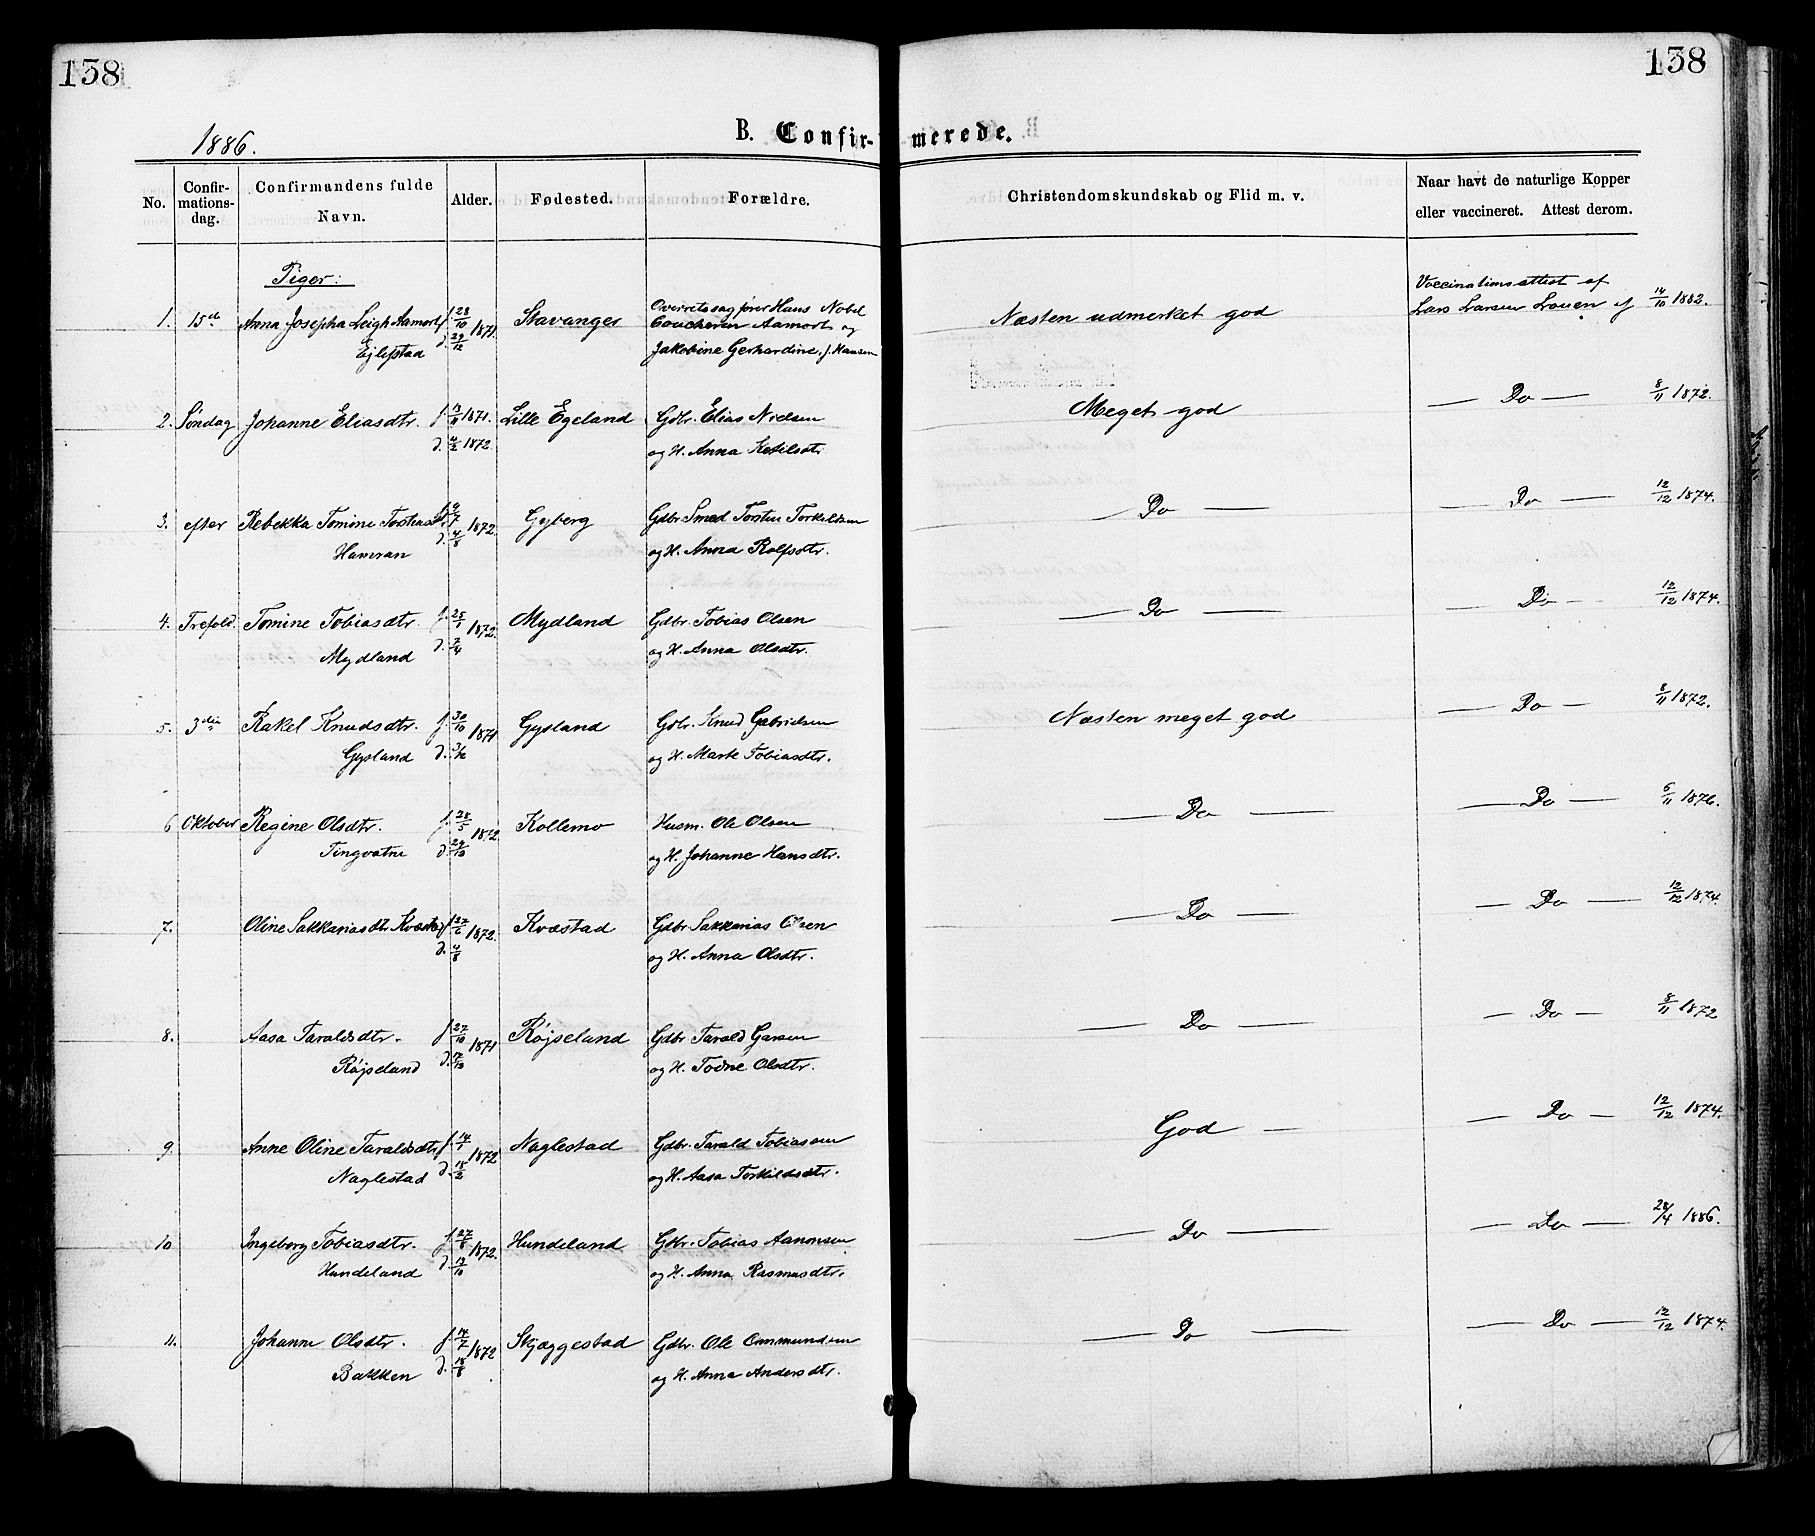 138
138
1886.
B. Confir-merede.
No.
Confir-
mations-
dag.
Confirmandens fulde
Navn.
Alder.
Fødested.
Forældre.
Christendomskundskab og Flid m. v.
Naar havt de naturlige Kopper
eller vaccineret. Attest derom.
Piger:
1. 15de Anna Josepha Leigh Aamort f. 28/10 1871. Stavanger Overretssagfører Hans Nobel
Ejlestad d. 29/12 Coucheron Aamort og
Jakobine Gerhardine f. Hansen
Næsten udmerket god
Vaccinationsattest af
Lars Larsen Lauen af 14/10 1882.
2. Søndag Johanne Eliasdtr. f. 13/11 1871. Lille Egeland Gdbr. Elias Nielsen
d. 4/2 1872. og H. Anna Ketilsdtr.
Meget god — Do — 8/11 1872.
3. efter Rebekka Tomine Torstensdt. f. 9/7 1872. Gyberg Gdbr. Smed Torsten Torkildsen
Hamran d. 4/8 og H. Anna Rolfsdtr.
— Do — — Do — 12/12 1874.
4. Trefold. Tomine Tobiasdtr f. 25/1 1872. Mydland Gdbr. Tobias Olsen
Mydland d. 7/4 og H. Anna Olsdtr.
— Do — — Do — 12/12 1874.
5. 3die Rakel Knudsdtr. f. 30/10 1871 Gysland Gdbr. Knud Gabrielsen
Gysland d. 3/12 og H. Marte Tobiasdtr.
Næsten meget god — Do — 8/11 1872.
6 Oktober Regine Olsdtr. f. 28/5 1872 Kollemo Husm. Ole Olsen
Tingvatne d. 29/10 og H. Johanne Hansdtr.
— Do — — Do — 6/11 1876.
7. Oline Sakkariasdtr Kvæstad f. 27/6 1872. Kvæstad Gdbr Sakkarias Olsen
d. 4/8 og H. Anna Olsdtr.
— Do — — Do — 12/12 1874.
8. Aasa Taraldsdtr. f. 27/10 1871 Røjseland Gdbr Tarald Garsen
Røjseland d. 17/12 og H. Todne Olsdtr.
— Do — — Do — 8/11 1872
9. Anne Oline Taraldsdtr f. 14/1 1872 Naglestad Gdbr. Tarald Tobiassen
Naglestad d. 18/2 og H. Aasa Torkildsdtr.
God — — Do — 12/12 1874.
10. Ingeborg Tobiasdtr. f. 27/8 1872. Hundeland Gdbr. Tobias Aanonsen
Hundeland d. 13/10 og H. Anna Rasmusdtr.
— Do — — Do — 28/4 1886.
11. Johanne Olsdtr. f. 14/7 1872 Skjeggestad Gdbr. Ole Ommundsen
Bakken d. 18/8 og H. Anna Andersdtr.
— Do — — Do — 12/12 1874.